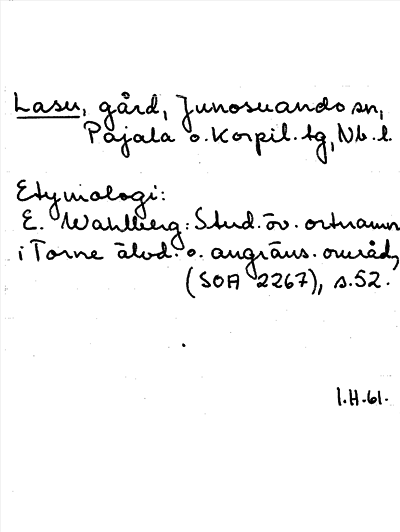 Lasu, gård, Junosuando sn,
Pajala o. Korpil. tg, Nb. l.
Etymologi:
E. Wahlberg: Stud. öv. ortnamn
i Torne älvd. o. angräns. områd,
(SOA 2267), s. 52.
I.H.61.